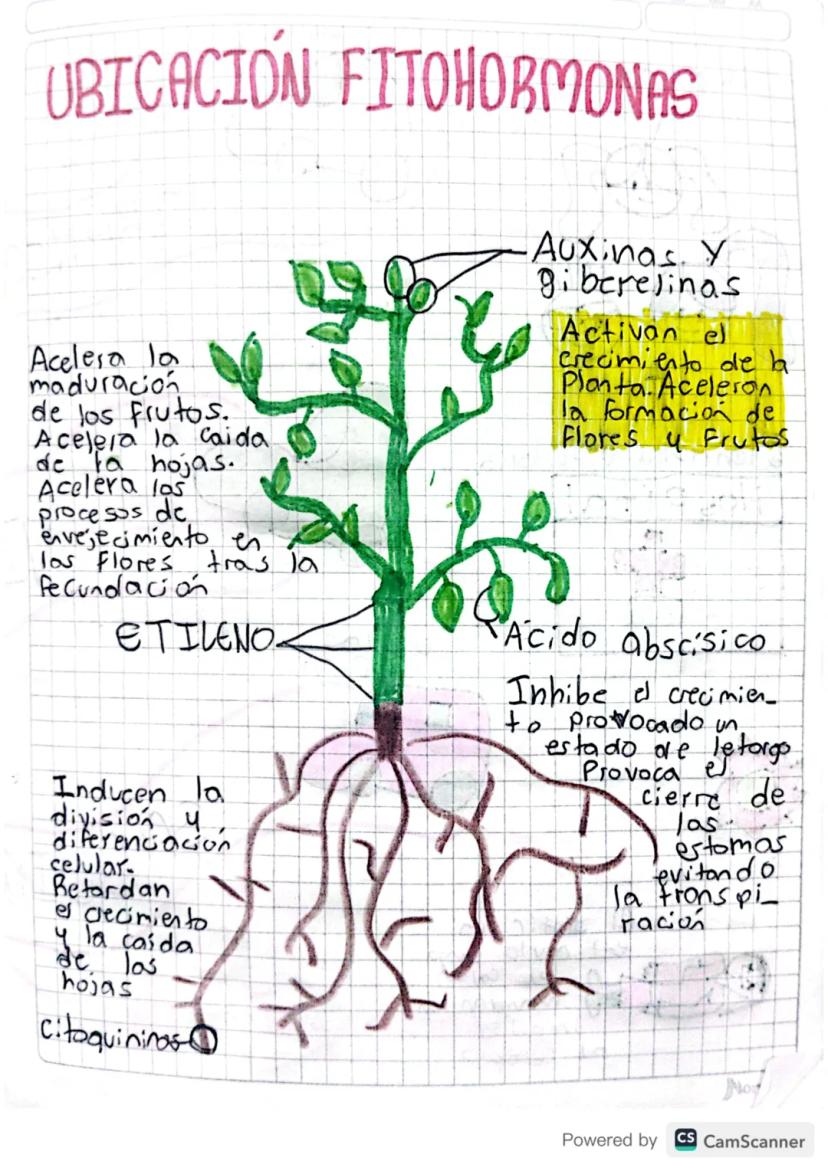 UBICACIÓN FITOHORMONAS
Auxinas y
giberelinas
Activan el
crecimiento de la
Planta. Aceleran
la formación de
Flores y Frutos
Acelera la
maduración
de los frutos.
Acelera la caida
de la hojas.
Acelera los
procesos de
envejecimiento en
las flores tras la
fecundación
ETILENO
Ácido abscísico
Inhibe el crecimien_
to provocado un
estado de letargo
Provoca el
cierre de
las
estomas
evitando
la transpi_
ración
Inducen la
división y
diferenciación
celular.
Retardan
el crecimiento
y la caída
de las
hojas
Citoquininas
Powered by CS CamScanner